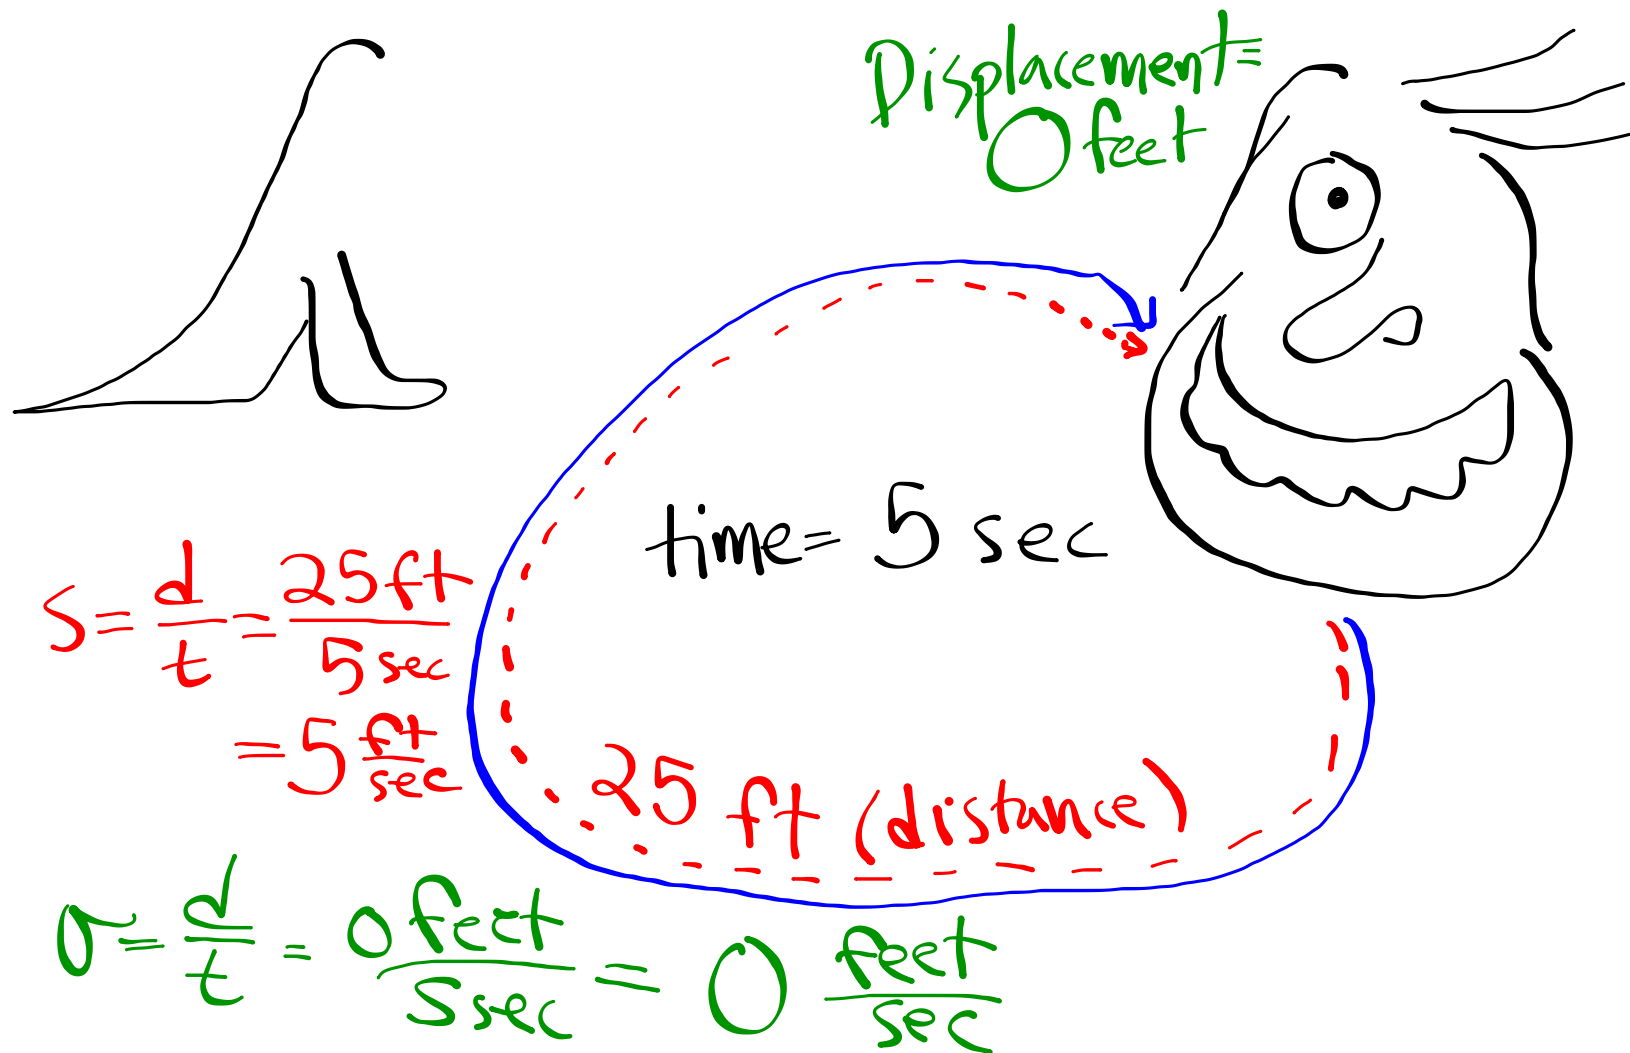 Displacement =
0 feet
time = 5 sec
s = d/t = 25 ft/5 sec
= 5 ft/sec
25 ft (distance)
σ = d/t = 0 feet/5 sec = 0 feet/sec